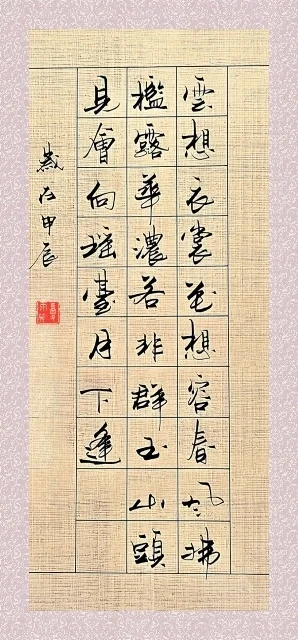 雲想衣裳花想容春風拂
檻露華濃若非群玉山頭
見會向瑤臺月下逢
歲在甲辰